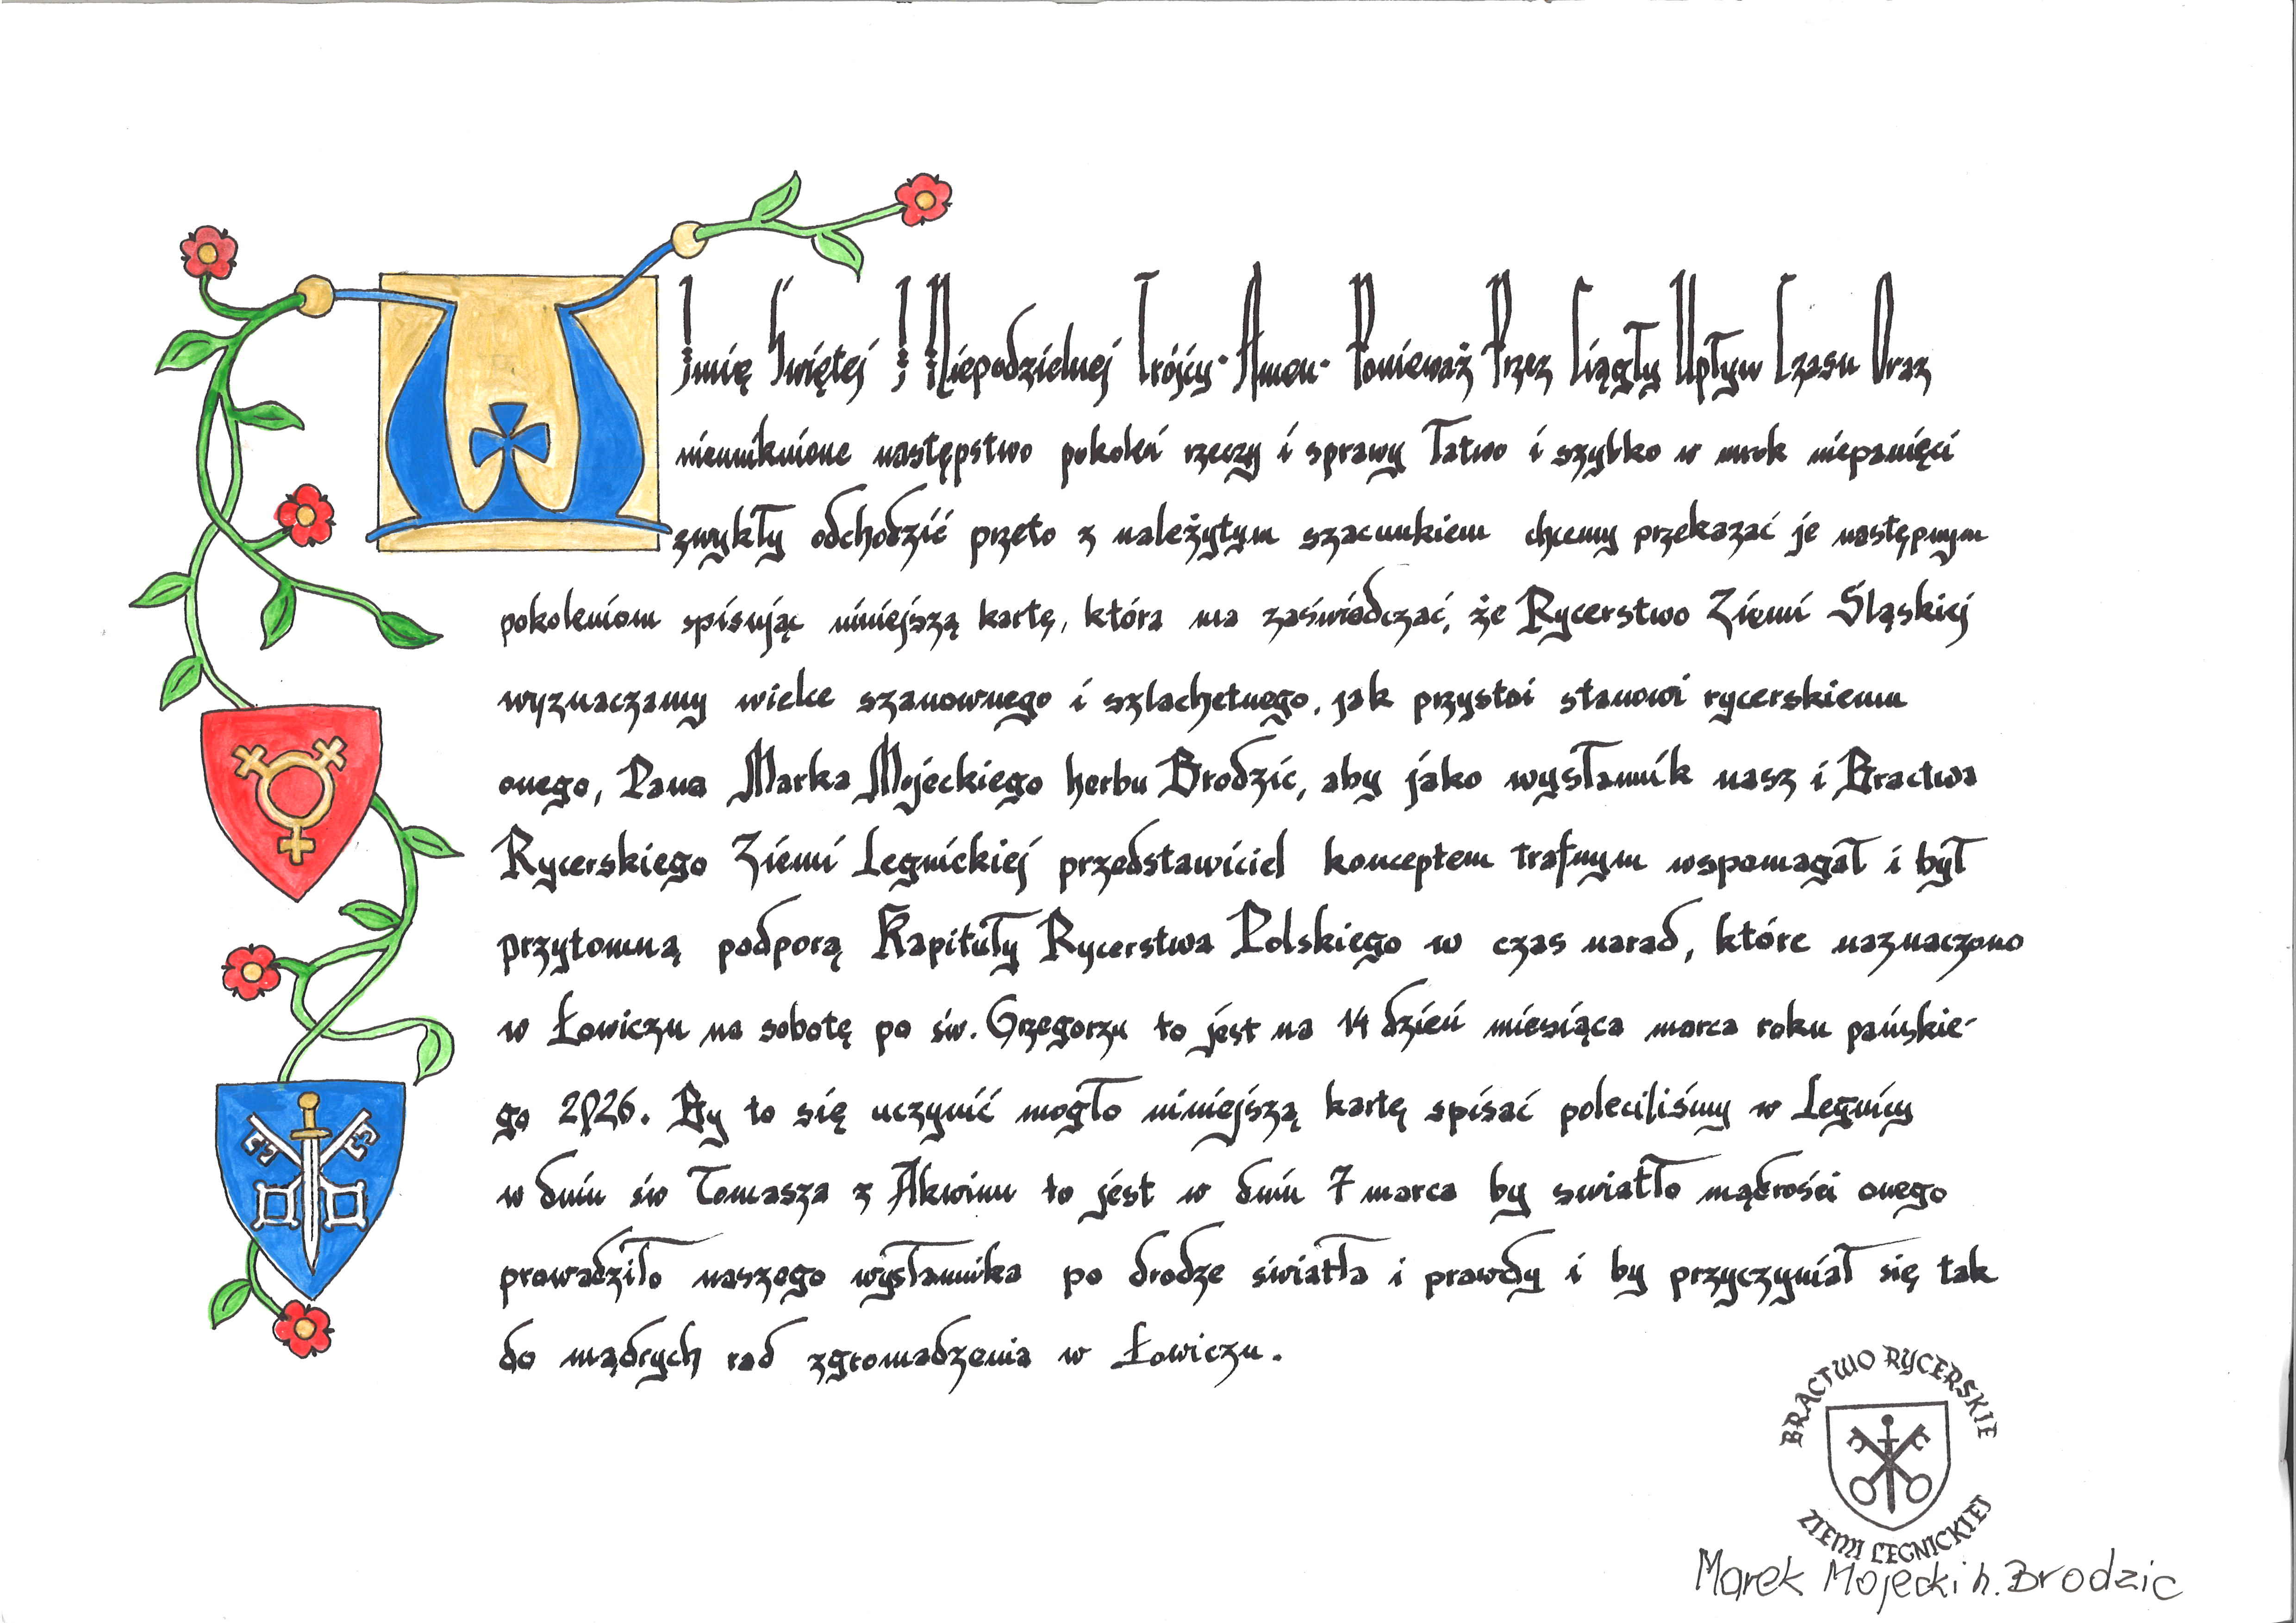 W Imię Świętej I Niepodzielnej Trójcy · Amen · Ponieważ Przez Ciągły Upływ Czasu Oraz
nieuniknione następstwo pokoleń rzeczy i sprawy łatwo i szybko w mrok niepamięci
zwykły odchodzić przeto z należytym szacunkiem chcemy przekazać je następnym
pokoleniom spisując niniejszą kartę, która ma zaświadczać, że Rycerstwo Ziemi Śląskiej
wyznaczamy wielce szanownego i szlachetnego, jak przystoi stanowi rycerskiemu
onego, Pana Marka Mojeckiego herbu Brodzic, aby jako wysłannik nasz i Bractwa
Rycerskiego Ziemi Legnickiej przedstawiciel konceptem trafnym wspomagał i był
przytomną podporą Kapituły Rycerstwa Polskiego w czas narad, które naznaczono
w Łowiczu na sobotę po św. Grzegorzu to jest na 14 dzień miesiąca marca roku pańskie-
go 2026. By to się uczynić mogło niniejszą kartę spisać poleciliśmy w Legnicy
w dniu św Tomasza z Akwinu to jest w dniu 7 marca by swiatło mądrości onego
prowadziło naszego wysłannika po drodze światła i prawdy i by przyczyniał się tak
do mądrych rad zgromadzenia w Łowiczu.
BRACTWO RYCERSKIE
ZIEMI LEGNICKIEJ
Marek Mojecki h. Brodzic